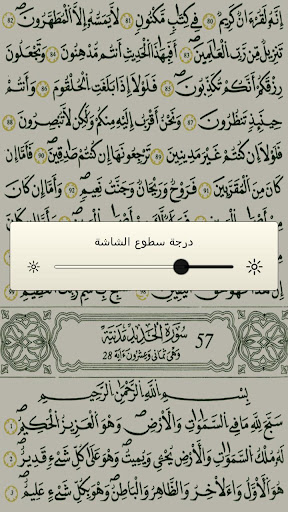 إنه لقرءان كريم 80 في كتب مكنون 81 لا يمسه إلا المطهرون 82
تنزيل من رب العلمين 83 أفبهذا الحديث أنتم مدهنون 84 وتجعلون
رزقكم أنكم تكذبون 85 فلولا إذا بلغت الحلقوم 86 وأنتم
حينئذ تنظرون 87 ونحن أقرب إليه منكم ولكن لا تبصرون 88
فلولا إن كنتم غير مدينين 89 ترجعونها إن كنتم صدقين 90 فأما إن
كان من المقربين 91 فروح وريحان وجنت نعيم 92 وأما إن كان
درجة سطوع الشاشة
سورة الحديد مدنية 57
وهي ثماني وعشرون ءاية 28
بسم الله الرحمن الرحيم
سبح لله ما في السموت والأرض وهو العزيز الحكيم 1
له ملك السموت والأرض يحي ويميت وهو على كل شيء قدير 2
هو الأول والءاخر والظاهر والباطن وهو بكل شيء عليم 3